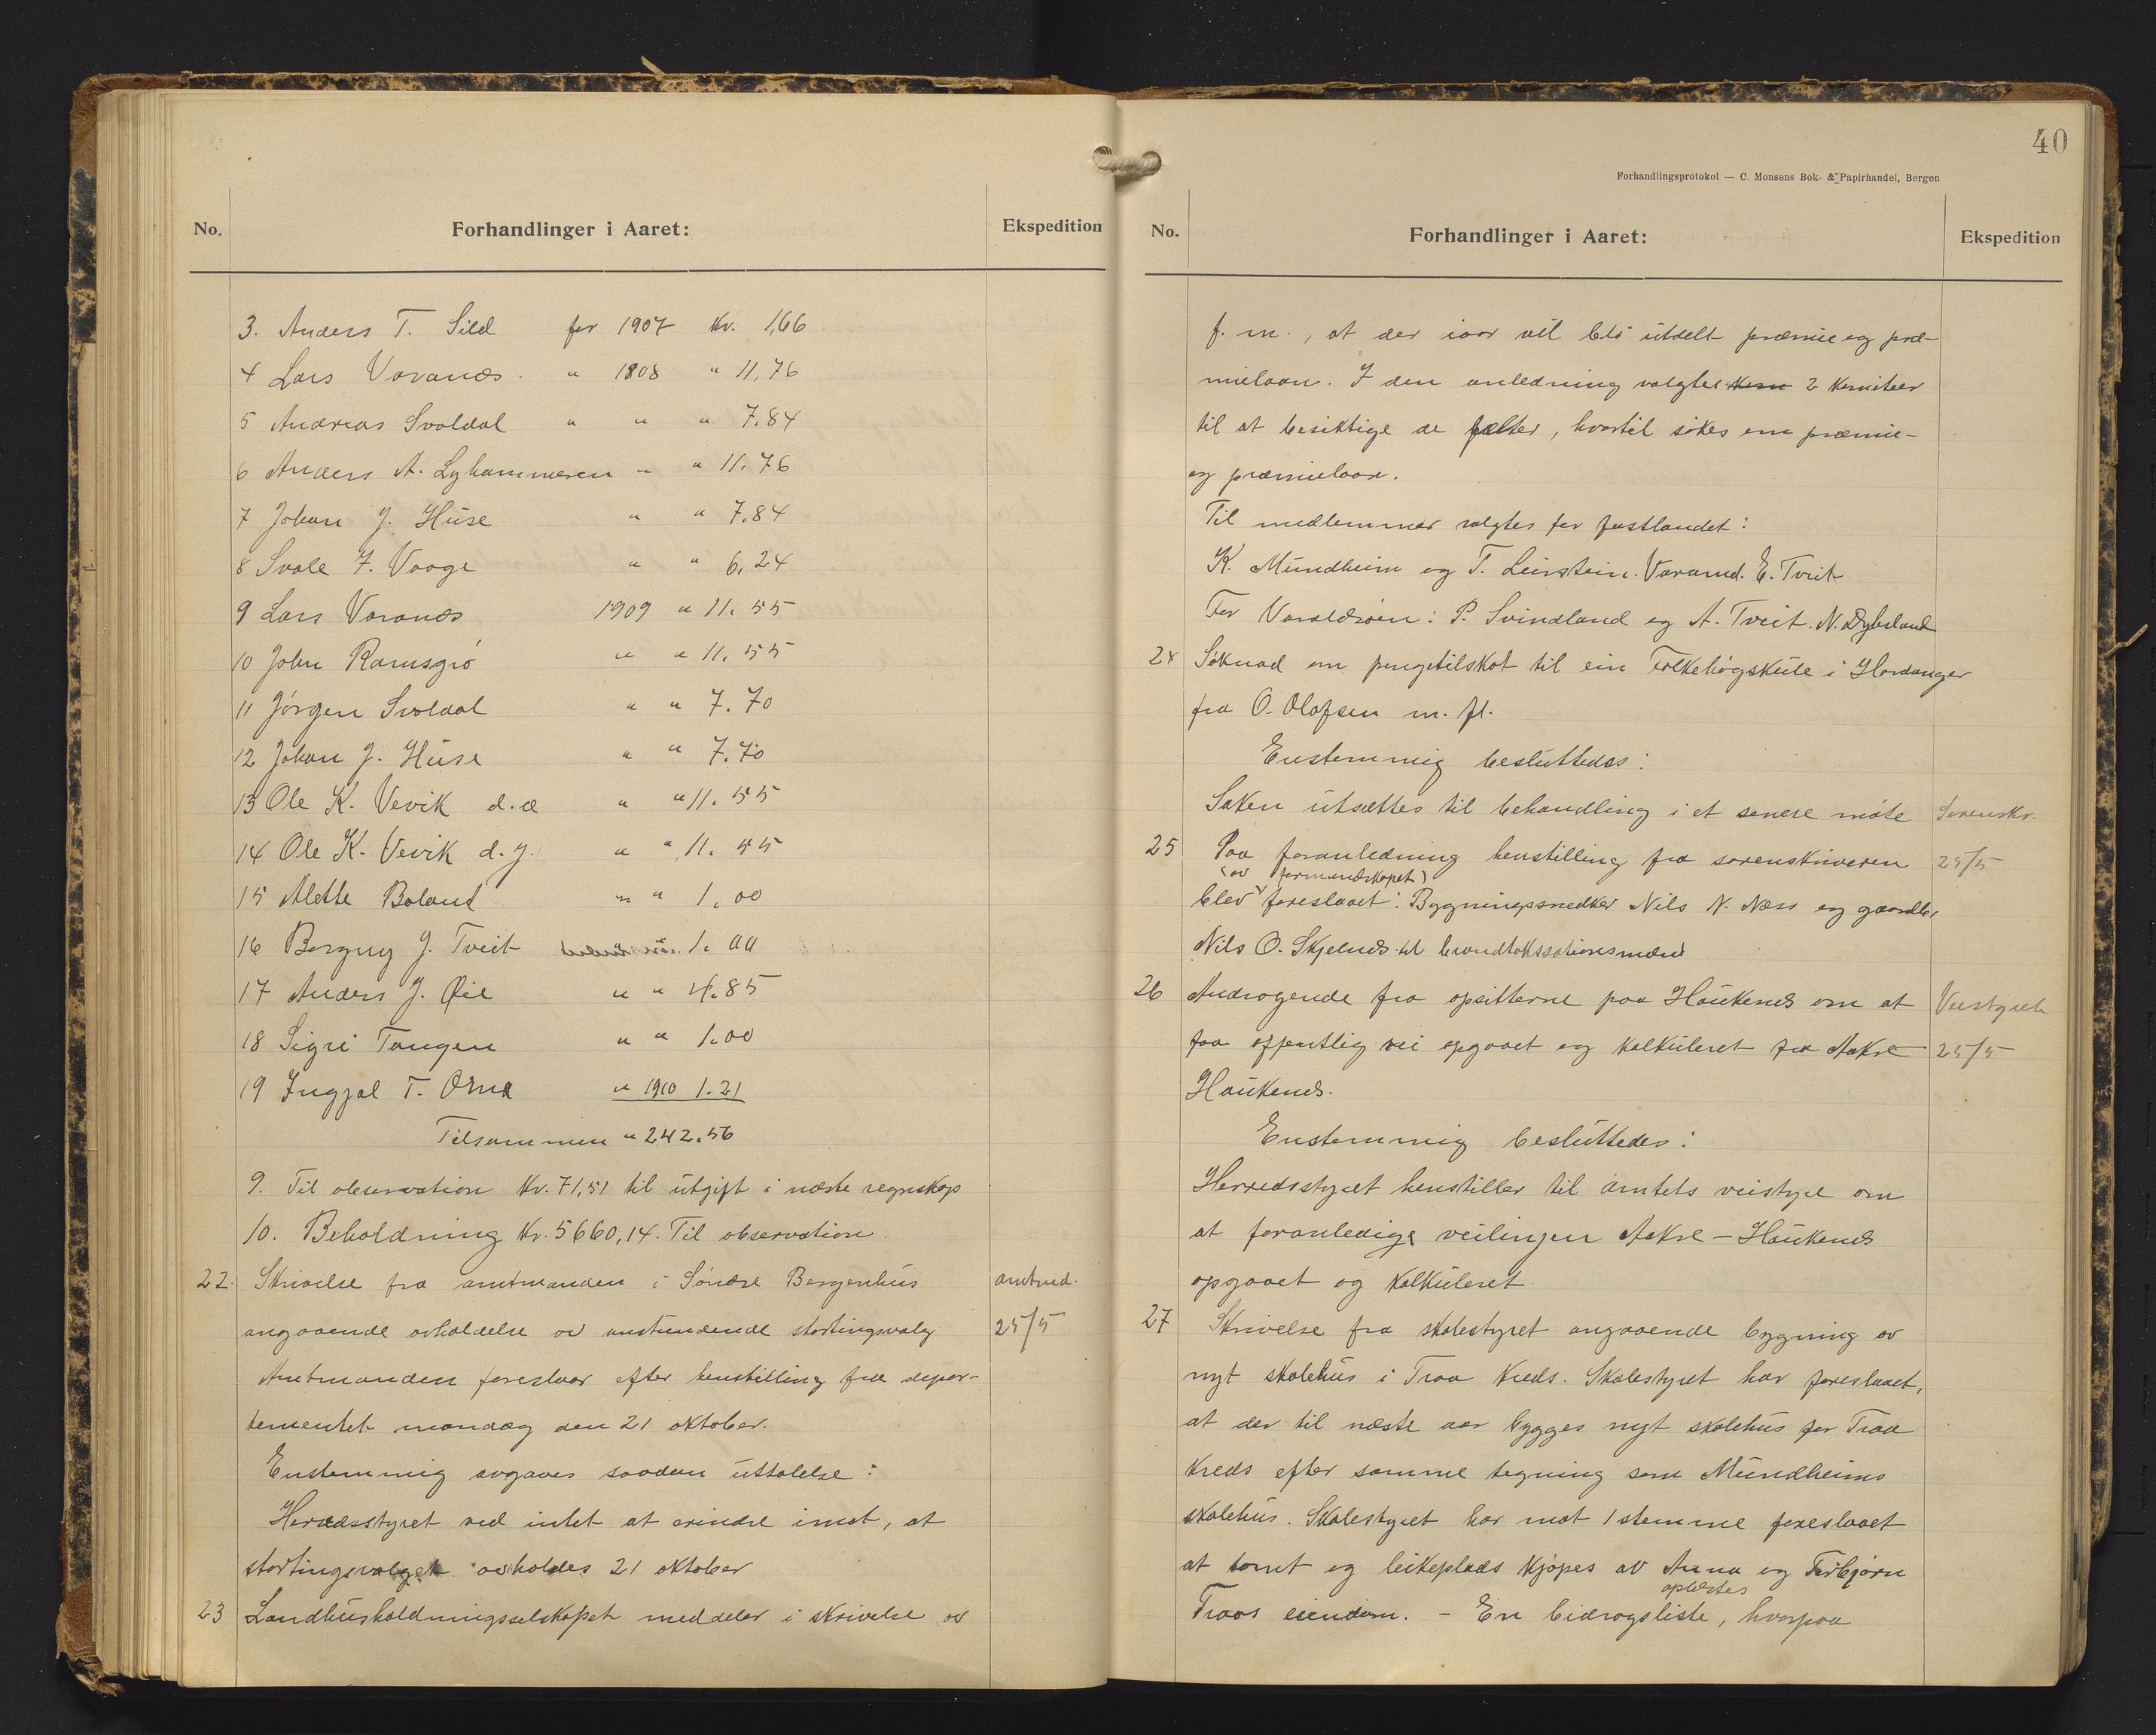 No. Forhandlinger i Aaret: Ekspedition
3. Anders T. Sild for 1907 kr. 1,66
4 Lars Varanæs. " 1908 " 11,76
5 Andreas Svoldal " " " 7.84
6 Anders A. Lyhammeren " " 11.76
7 Johan J. Huse " " 7.84
8 Svale J. Vaage " " 6,24
9 Lars Varanæs 1909 " 11.55
10 John Ramsgrø " " 11.55
11 Jørgen Svoldal " " 7.70
12 Johan J. Huse " " 7.70
13 Ole K. Vevik d.æ " " 11.55
14 Ole K. Vevik d.y. " " 11.55
15 Alette Boland " " 1,00
16 Bergny J. Tveit 1.00
17 Anders J. Øie " " 4.85
18 Sigri Tangen " " 1.00
19 Ingjal T. " 1910 1.21
Tilsammen " 242.56
9. Til observation kr. 71,51 til utgift i næste regnskap
10. Beholdning kr. 5660,14. Til observation.
22. Skrivelse fra amtmanden i Søndre Bergenhus amtmd.
angaaende avholdelse av anstundende stortingsvalg 25/5
Amtmanden foreslaar efter henstilling fra depar-
tementet mandag den 21 oktober.
Enstemmig avgaves saadan uttalelse:
Herredsstyret ved intet at erindre imot, at
stortingsvalget avholdes 21 oktober
23 Landhusholdningsselskapet meddeler i skrivelse av
40
Forhandlingsprotokol — C. Monsens Bok- & Papirhandel, Bergen
No. Forhandlinger i Aaret: Ekspedition
f. m., at der iaar vil bli utdelt præmie og præ-
mielaan. I den anledning valgtes 2 komiteer
til at besiktige de felter, hvortil søkes om præmie-
og præmielaan.
Til medlemmer valgtes for fastlandet:
K. Mundheim og T. Leirstein. Varamd. E. Tveit
For Varaldsøen: P. Svindland og A. Tveit. N. Dyhrland
24 Søknad om pengetilskot til ein Folkehøgskule i Hardanger
fra O. Olafsen m. fl.
Enstemmig besluttedes:
Saken utsættes til behandling i et senere møte Sorenskr.
25 Paa foranledning henstilling fra sorenskriveren 25/5
(av formandskapet)
blev foreslaaet: Bygningssnedker Nils N. Næss og gaardbr.
Nils O. Skjelnæs til brandtakssationsmænd
26 Andragende fra opsitterne paa Haukenæs om at Veistyret
faa offentlig vei opgaaet og kalkuleret fra Aakre 25/5
Haukenæs.
Enstemmig besluttedes:
Herredsstyret henstiller til amtets veistyre om
at foranledige veilinjen Aakre – Haukenæs
opgaaet og kalkuleret.
27 Skrivelse fra skolestyret angaaende bygning av
nyt skolehus i Traa kreds. Skolestyret har foreslaaet,
at der til næste aar bygges nyt skolehus for Traa
kreds efter samme tegning som Mundheims
skolehus. Skolestyret har mot 1 stemme foreslaaet
at tomt og leikeplads kjøpes av Anna og Torbjørn
oplæstes
Traas eiendom. – En bidragsliste, hvorpaa